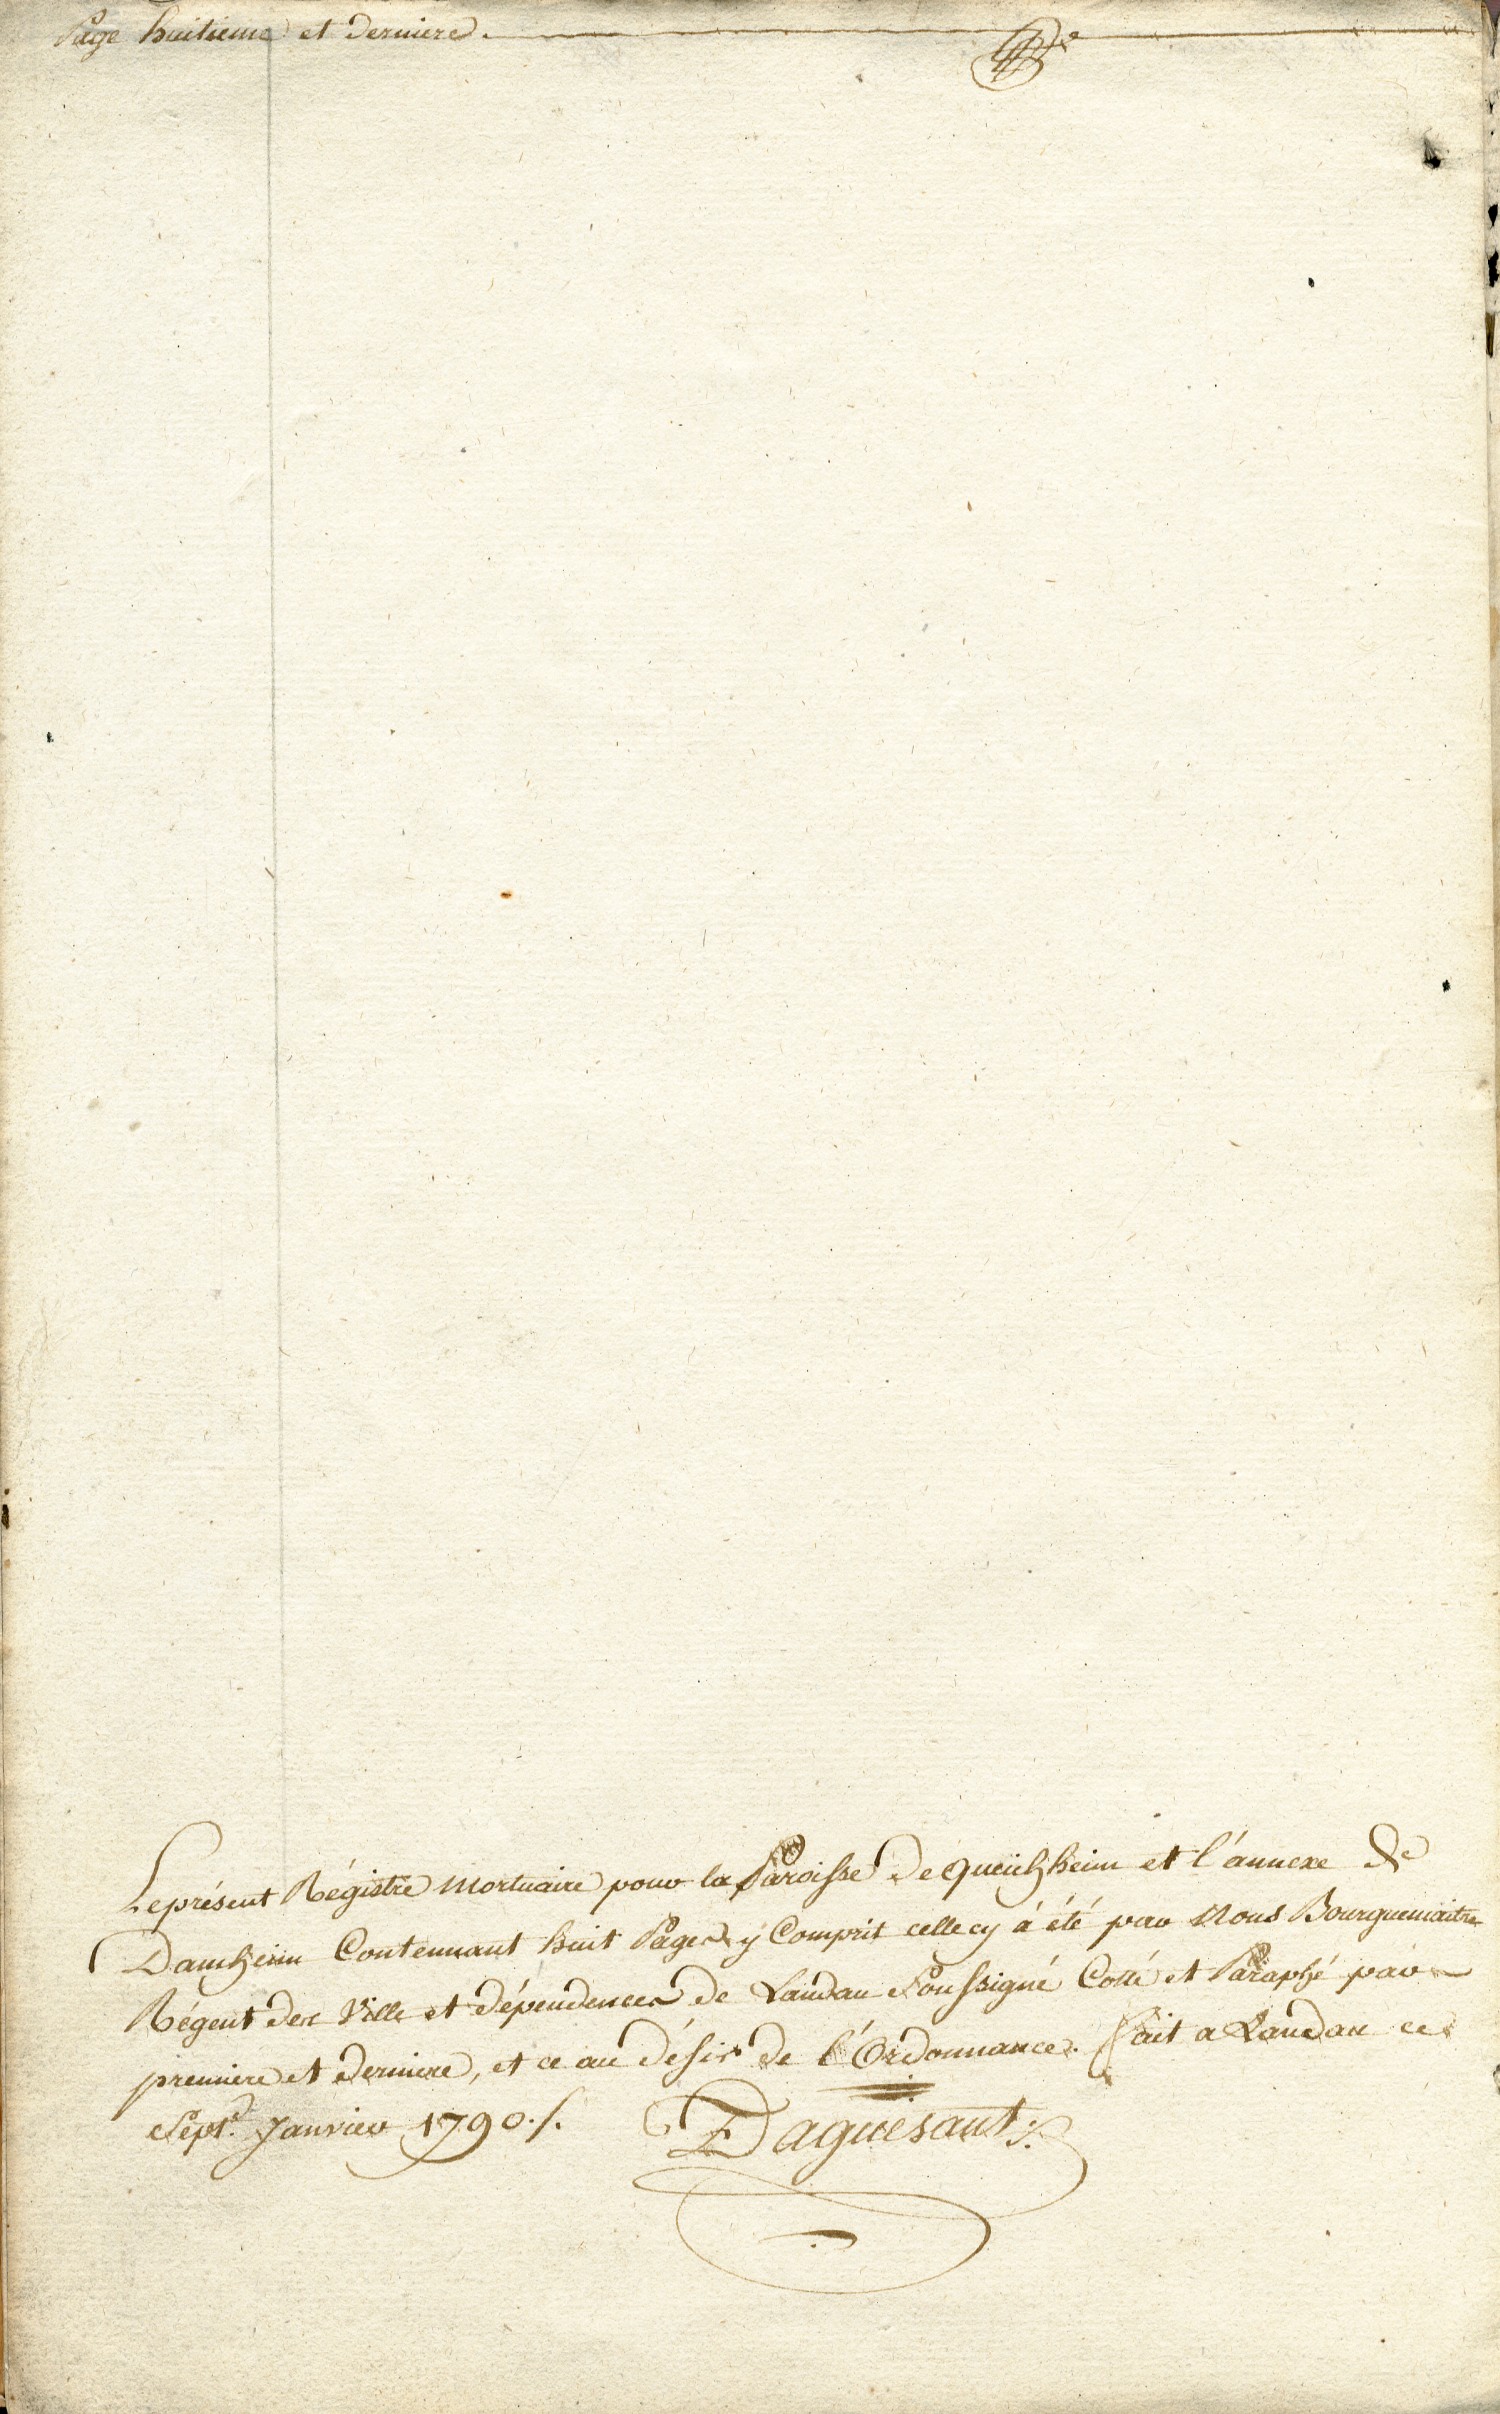 Page huitieme et derniere.
Le présent Régistre Mortuaire pour la Paroisse de Queichheim et l'annexe de
Damheim Contennant huit Pages y Comprit celle cy á été par Nous Bourguemaitre
Régent des Ville et dépendences de Landau Soussigné Cotté et Paraphé par
premiere et derniere, et ce au désir de l'Ordonnance. fait a Landau ce
Sept.e Janvier 1790./.
Daguesant